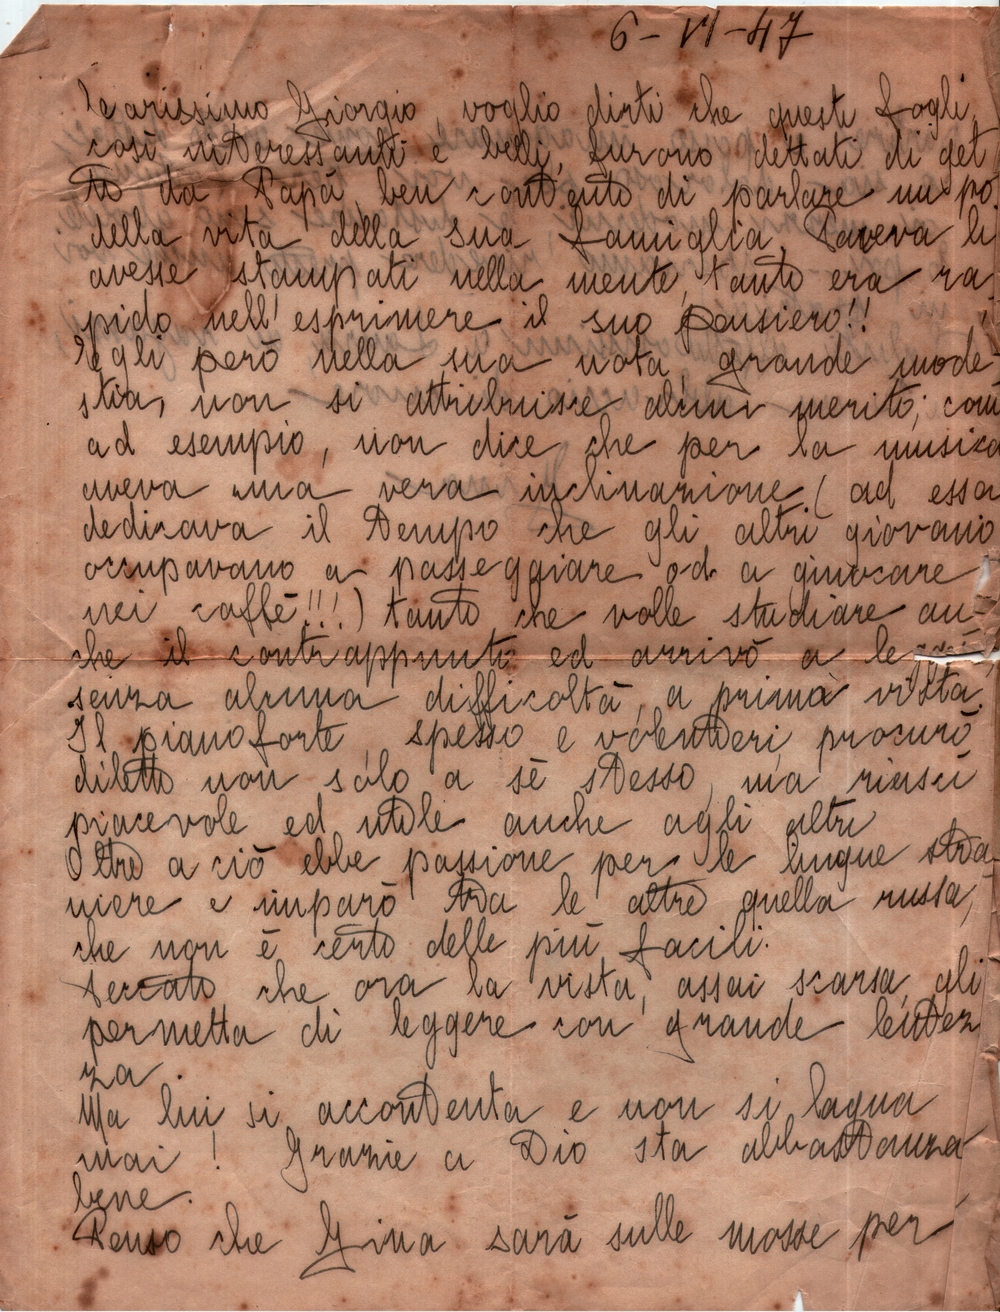 6-VI-47
Carissimo Giorgio, voglio dirti che questi fogli,
così interessanti e belli, furono dettati di get
to da Papà, ben contento di parlare un po'
della vita della sua famiglia. Pareva li
avesse stampati nella mente, tanto era ra
pido nell'esprimere il suo pensiero!!
Egli però nella sua nota grande mode-
stia, non si attribuisce alcun merito; come
ad esempio, non dice che per la musica
aveva una vera inclinazione (ad essa
dedicava il tempo che gli altri giovani
occupavano a passeggiare od a giuocare
nei caffè!!!) tanto che volle studiare an-
che il contrappunto ed arrivò a
senza alcuna difficoltà, a prima vista.
Il pianoforte, spesso e volentieri, procurò
diletto non sólo a sè stesso, ma riuscì
piacevole ed utile anche agli altri
Oltre a ciò ebbe passione per le lingue stra-
niere e imparò tra le altre quella russa,
che non è certo delle più facili.
Peccato che ora la vista, assai scarsa, gli
permetta di leggere con grande lentez
za.
Ma lui si accontenta e non si lagna
mai! Grazie a Dio sta abbastanza
bene.
Penso che Gina sarà sulle mosse per